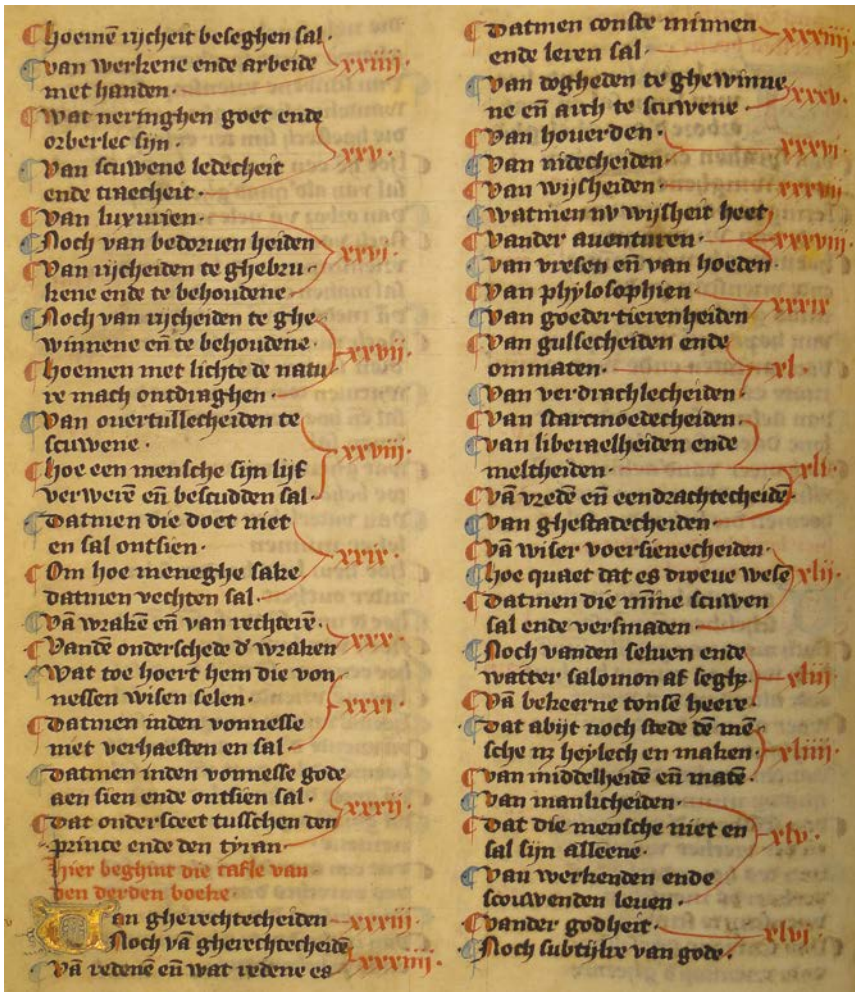 hoemē rijcheit beseghen sal·
van werkene ende arbeide
met handen· xxiiij·
Wat neringhen goet ende
orberlec sijn·
Van scuwene ledecheit
ende traecheit· xxv·
Van luxurien·
Noch van bedoruen heiden
Van rijcheiden te ghebru
kene ende te behoudene· xxvi·
Noch van rijcheiden te ghe
winnene en̄ te behoudene·
hoemen met lichte de natu
re mach ontdraghen· xxvij·
Van ouertullecheiden te
scuwene·
hoe een mensche sijn lijf
verwerē en̄ bescudden sal· xxviij·
Datmen die doet niet
en sal ontsien·
Om hoe meneghe sake
datmen vechten sal· xxix·
Vā wrakē en̄ van rechterē·
Vandē onderschede d' wraken xxx·
Wat toe hoert hem die von
nessen wisen selen·
Datmen inden vonnesse
niet verhaesten en sal· xxxi·
Datmen inden vonnesse gode
aen sien ende ontsien sal·
Dat ondersceet tusschen den
prince ende den tyran· xxxij·
hier beghint die tafle van
den derden boeke·
Van gherechtecheiden xxxiij·
Noch vā gherechtecheidē
Vā redenē en̄ wat redene es xxxiiij·
Datmen conste minnen
ende leren sal· xxxiiij·
Van dogheden te ghewinne
ne en̄ arch te scuwene· xxxv·
Van houerden·
Van nidecheiden· xxxvi·
Van wijsheiden· xxxvij
watmen nv wijsheit heet
Vander auenturen·
van vresen en̄ van hoeden· xxxviij·
Van phylosophien·
Van goedertierenheiden xxxix
Van gulsecheiden ende
ommaten·
Van verdrachlecheiden· xl·
Van starcmoedecheiden·
van liberaelheiden ende
meltheiden·
Vā vredē en̄ eendrachtecheidē
Van ghestadecheiden· xli·
Vā wiser voersienecheiden·
hoe quaet dat es droeue wesē
Datmen die mīne scuwen
sal ende versmaden xlij·
Noch vanden seluen ende
watter salomon af seght·
Vā bekeerne tonsē heere· xliij·
Dat abijt noch stede dē mē
sche nz heylech en maken·
Van middelheidē en̄ matē· xliiij·
Van manlicheiden·
Dat die mensche niet en
sal sijn alleene·
Van werkenden ende
scouwenden leuen· xlv·
Vander godheit·
Noch subtijlre van gode· xlvi·